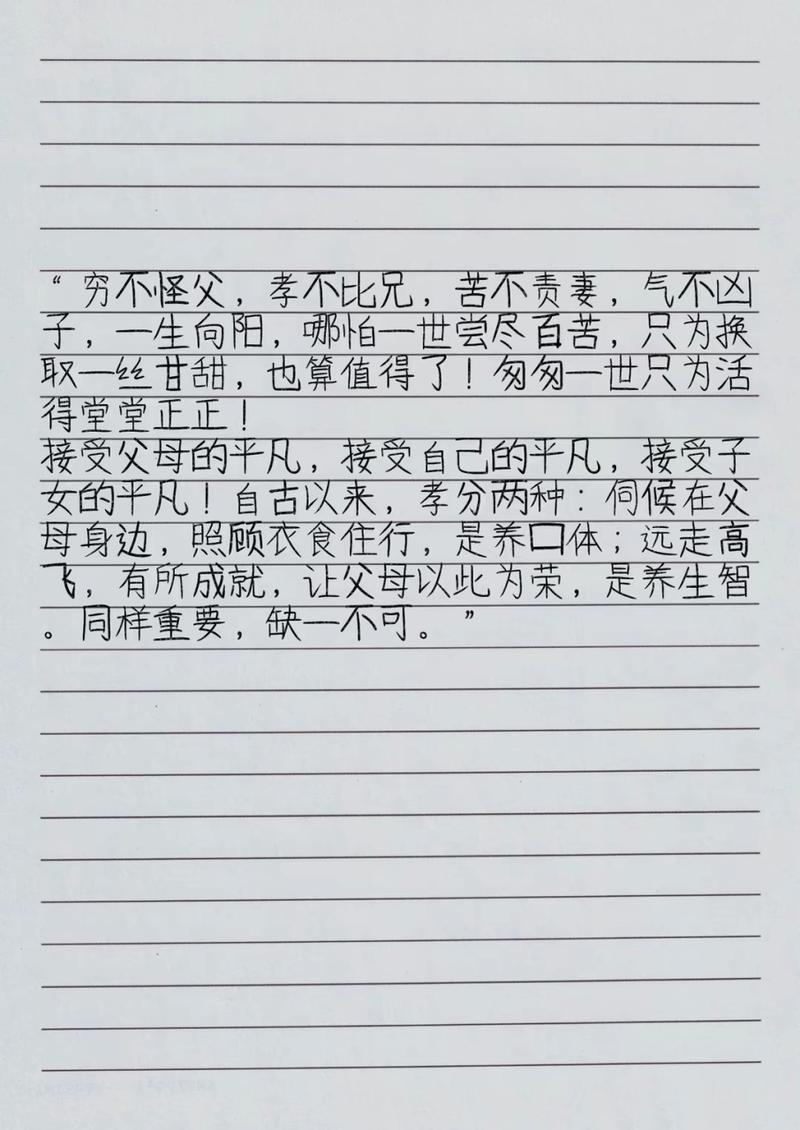 “穷不怪父，孝不比兄，苦不责妻，气不凶
子，一生向阳，哪怕一世尝尽百苦，只为换
取一丝甘甜，也算值得了！匆匆一世只为活
得堂堂正正！
接受父母的平凡，接受自己的平凡，接受子
女的平凡！自古以来，孝分两种：伺候在父
母身边，照顾衣食住行，是养口体；远走高
飞，有所成就，让父母以此为荣，是养生智
。同样重要，缺一不可。”